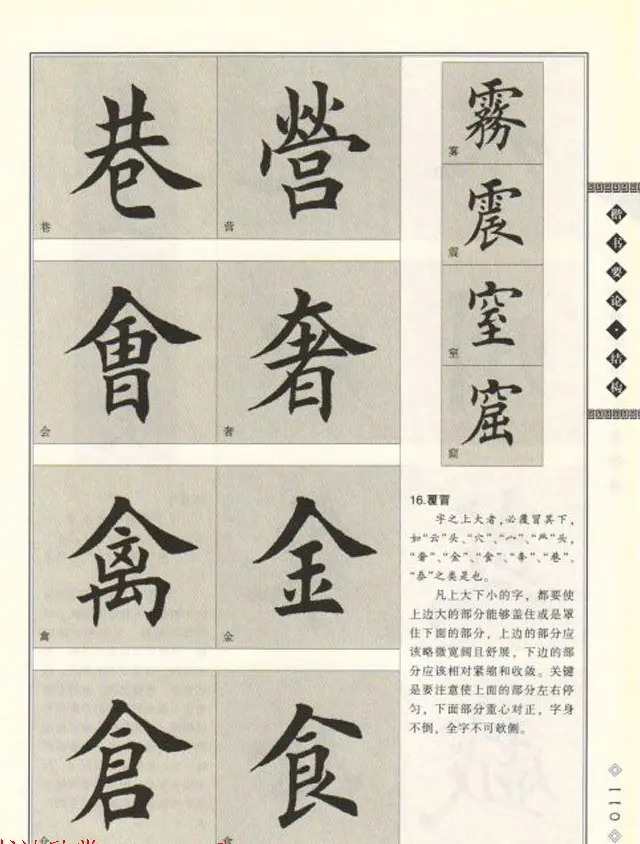 巷
巷
營
营
會
会
奢
奢
禽
禽
金
金
倉
食
霧
雾
震
震
窒
室
窟
窟
16.覆冒
字之上大者，必覆冒其下，
如“云”头、“穴”、“宀”、“𤇾”头，
“奢”、“金”、“食”、“夆”、“巷”、
“泰”之类是也。
凡上大下小的字，都要使
上边大的部分能够盖住或是罩
住下面的部分，上边的部分应
该略微宽阔且舒展，下边的部
分应该相对紧缩和收敛。关键
是要注意使上面的部分左右停
匀，下面部分重心对正，字身
不倒，全字不可欹侧。
楷书要论·结构
110